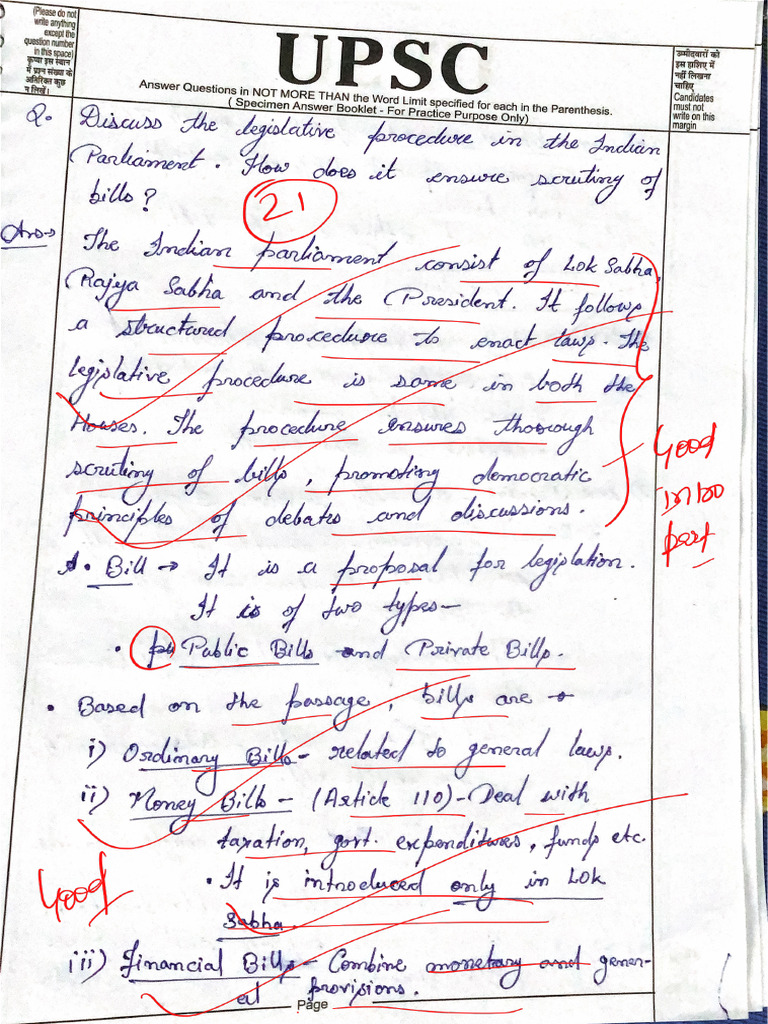 (Please do not
write anything
except the
question number
in this space)
कृपया इस स्थान
में प्रश्न संख्या के
अतिरिक्त कुछ
न लिखें।
UPSC
Answer Questions in NOT MORE THAN the Word Limit specified for each in the Parenthesis.
( Specimen Answer Booklet - For Practice Purpose Only)
उम्मीदवारों को
इस हाशिए में
नहीं लिखना
चाहिए
Candidates
must not
write on this
margin
Q. Discuss the legislative procedure in the Indian
Parliament. How does it ensure scrutiny of
bills?
21
Ans→ The Indian parliament consist of Lok Sabha,
Rajya Sabha and the President. It follows
a structured procedure to enact laws. The
legislative procedure is same in both the
Houses. The procedure ensures thorough
scrutiny of bills, promoting democratic
principles of debates and discussions.
Good
intro
part
A. Bill → It is a proposal for legislation.
It is of two types-
• Public Bills and Private Bills.
• Based on the passage, bills are →
i) Ordinary Bills - related to general laws.
ii) Money Bills - (Article 110) - Deal with
taxation, govt. expenditures, funds etc.
• It is introduced only in Lok
Sabha
Good
iii) Financial Bills - Combine monetary and gener-
al provisions.
Page